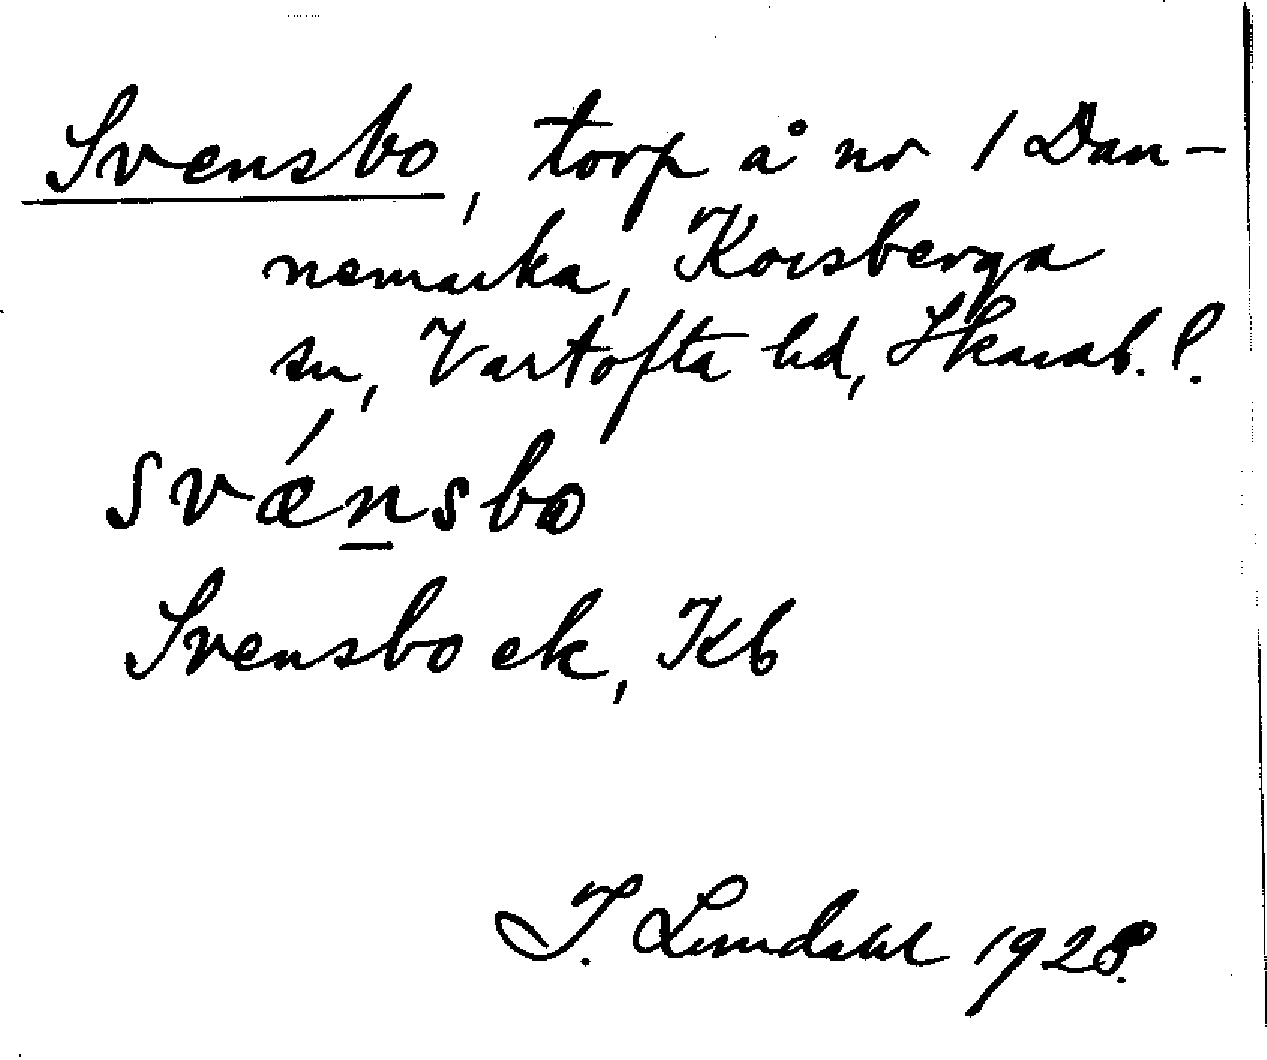 Svensbo, torp å nr 1 Dan-
nemarka, Korsberga
sn, Vartofta hd, Skarab. l.
svǽnsbo
Svensbo ek, Kb
I. Lundahl 1928.